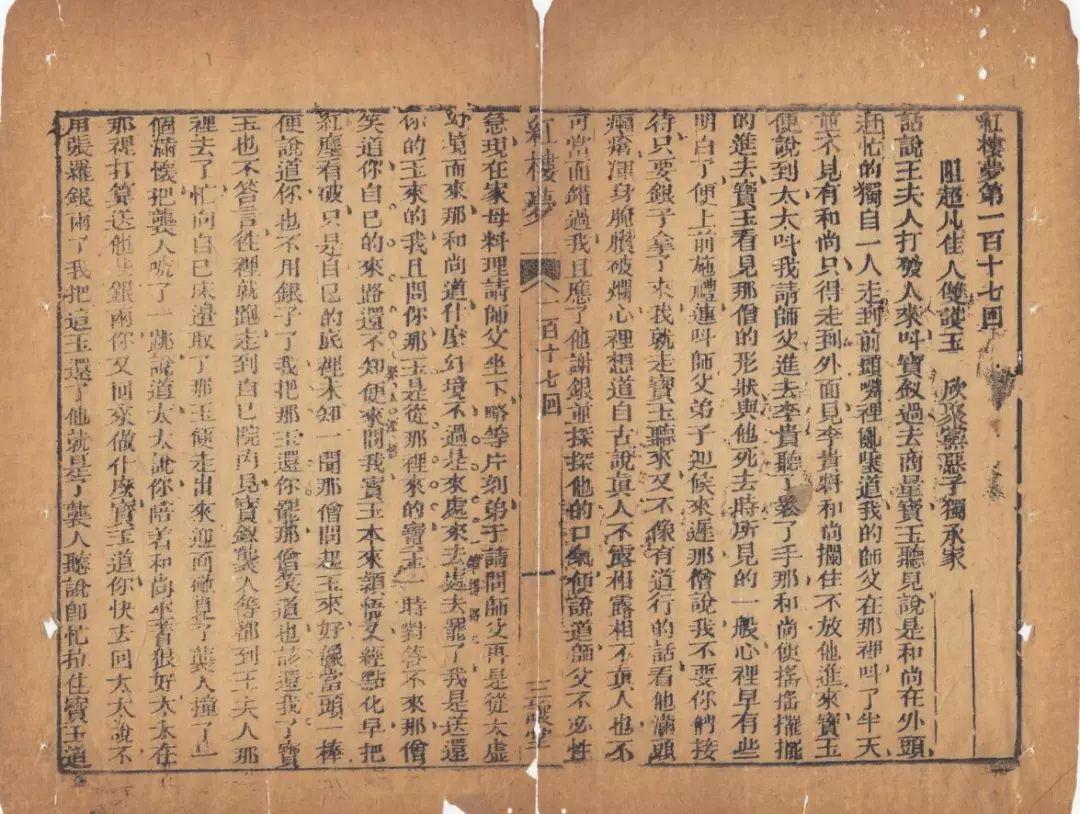 紅樓夢第一百十七回
阻超凡佳人雙護玉　欣聚黨惡子獨承家
話說王夫人打發人來叫寶釵過去商量寶玉聽見說是和尚在外頭
趕忙的獨自一人走到前頭嘴裡亂嚷道我的師父在那裡叫了半天
並不見有和尚只得走到外面見李貴將和尚攔住不放他進來寶玉
便說到太太叫我請師父進去李貴聽了鬆了手那和尚便搖搖擺擺
的進去寶玉看見那僧的形狀與他死去時所見的一般心裡早有些
明白了便上前施禮連叫師父弟子迎候來遲那僧說我不要你們接
待只要銀子拿了來我就走寶玉聽來又不像有道行的話看他滿頭
癩瘡渾身腌臢破爛心裡想道自古說眞人不露相露相不眞人也不
可當面錯過我且應了他謝銀並探探他的口氣便說道師父不必性
紅樓夢　一百十七回　一　三讓堂
急現在家母料理請師父坐下略等片刻弟子請問師父可是從太虛
幻境而來那和尚道什麽幻境不過是來處來去處去罷了我是送還
你的玉來的我且問你那玉是從那裡來的寶玉一時對答不來那僧
笑道你自己的來路還不知便來問我寶玉本來穎悟又經點化早把
紅塵看破只是自己的底裡未知一聞那僧問起玉來好像當頭一棒
便說道你也不用銀子了我把那玉還你罷那僧笑道也該還我了寶
玉也不答言徃裡就跑走到自己院內見寶釵襲人等都到王夫人那
裡去了忙向自己床邊取了那玉便走出來迎面碰見了襲人撞了一
個滿懷把襲人唬了一跳說道太太說你陪着和尚坐着狠好太太在
那裡打算送他些銀兩你又回來做什麽寶玉道你快去回太太說不
用張羅銀兩了我把這玉還了他就是了襲人聽說即忙拉住寶玉道